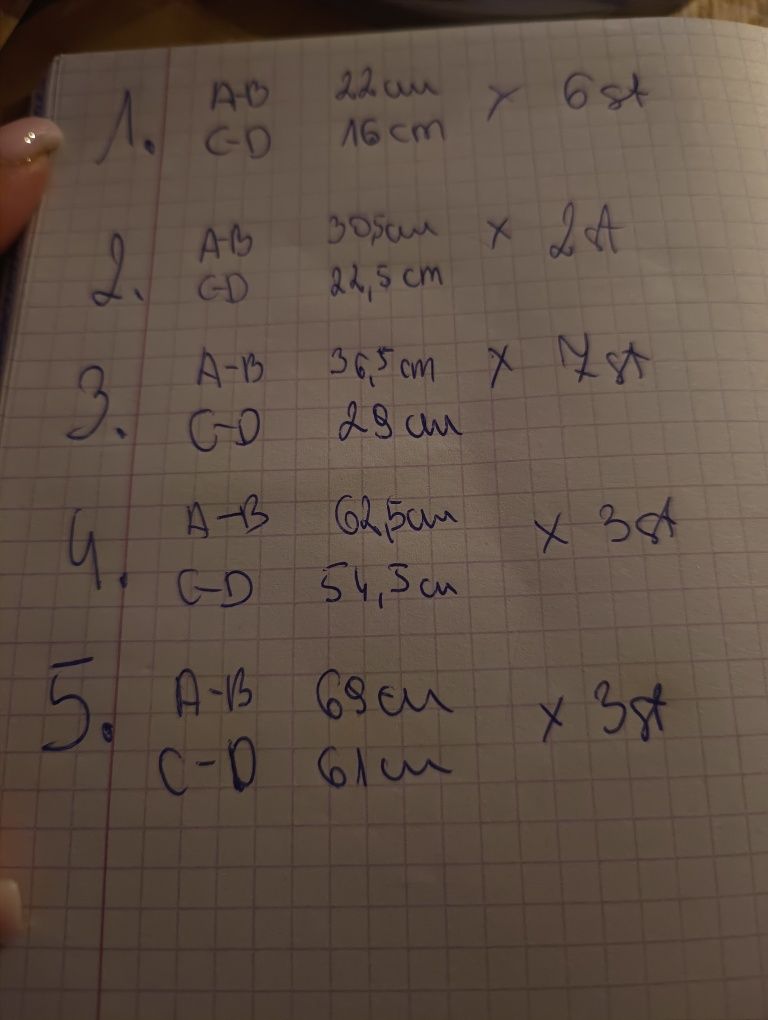 1. A-B 22cm x 6st
C-D 16cm
2. A-B 30,5cm x 2st
C-D 22,5cm
3. A-B 36,5cm x 7st
C-D 29cm
4. A-B 62,5cm x 3st
C-D 54,5cm
5. A-B 69cm x 3st
C-D 61cm